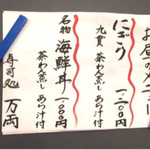 お昼のメニュー
にぎり
九貫 茶わん蒸し あら汁付
名物 海鮮丼
茶わん蒸し あら汁付
寿司処 万両